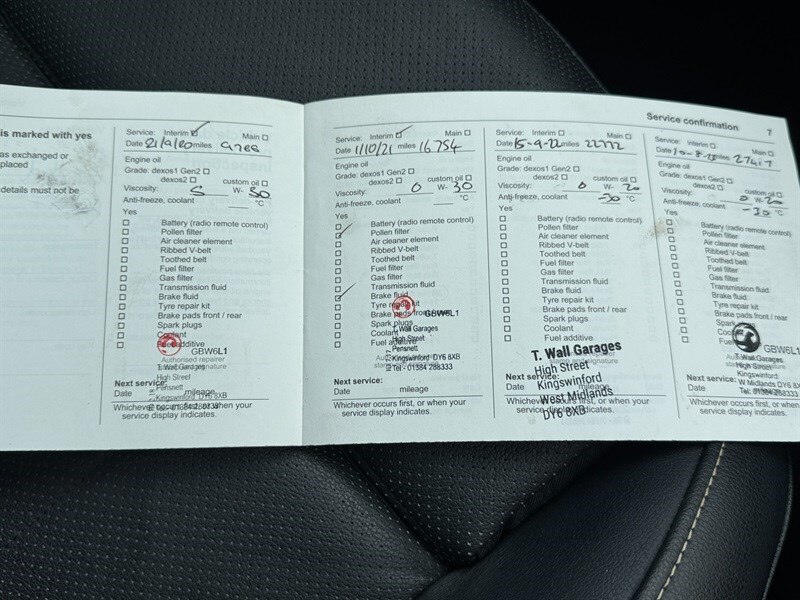 is marked with yes
as exchanged or
placed
details must not be
Service: Interim ✓ Main
Date 21/9/20 miles
Engine oil
Grade: dexos1 Gen2
dexos2 custom oil
Viscosity: 5 W- 30
Anti-freeze, coolant °C
Yes
Battery (radio remote control)
Pollen filter
Air cleaner element
Ribbed V-belt
Toothed belt
Fuel filter
Gas filter
Transmission fluid
Brake fluid
Tyre repair kit
Brake pads front / rear
Spark plugs
Coolant
Fuel additive
GBW6L1
Authorised repairer
T. Wall Garages
High Street
Pensnett
Kingswinford DY6 8XB
Next service:
Date mileage
Whichever occurs first, or when your
service display indicates.
Service: Interim ✓ Main
Date 1/10/21 miles 16754
Engine oil
Grade: dexos1 Gen2
dexos2 custom oil
Viscosity: 0 W- 30
Anti-freeze, coolant °C
Yes
Battery (radio remote control)
Pollen filter
Air cleaner element
Ribbed V-belt
Toothed belt
Fuel filter
Gas filter
Transmission fluid
Brake fluid
Tyre repair kit
Brake pads front / rear
Spark plugs
Coolant
Fuel additive
GBW6L1
T. Wall Garages
High Street
Pensnett
Kingswinford DY6 8XB
Tel: 01384 288333
Next service:
Date mileage
Whichever occurs first, or when your
service display indicates.
Service confirmation 7
Service: Interim Main
Date 15-9-22 miles 22772
Engine oil
Grade: dexos1 Gen2
dexos2 custom oil
Viscosity: 0 W- 20
Anti-freeze, coolant -30 °C
Yes
Battery (radio remote control)
Pollen filter
Air cleaner element
Ribbed V-belt
Toothed belt
Fuel filter
Gas filter
Transmission fluid
Brake fluid
Tyre repair kit
Brake pads front / rear
Spark plugs
Coolant
Fuel additive
T. Wall Garages
High Street
Kingswinford
West Midlands
DY6 8XB
Next service:
Date mileage
Whichever occurs first, or when your
service display indicates.
Service: Interim Main
Date miles 27417
Engine oil
Grade: dexos1 Gen2
dexos2 custom oil
Viscosity: 0 W- 20
Anti-freeze, coolant -30 °C
Yes
Battery (radio remote control)
Pollen filter
Air cleaner element
Ribbed V-belt
Toothed belt
Fuel filter
Gas filter
Transmission fluid
Brake fluid
Tyre repair kit
Brake pads front / rear
Spark plugs
GBW6L1
T. Wall Garages
High Street
Kingswinford
W Midlands DY6 8XB
Tel: 01384 288333
Next service:
Date mileage
Whichever occurs first, or when your
service display indicates.